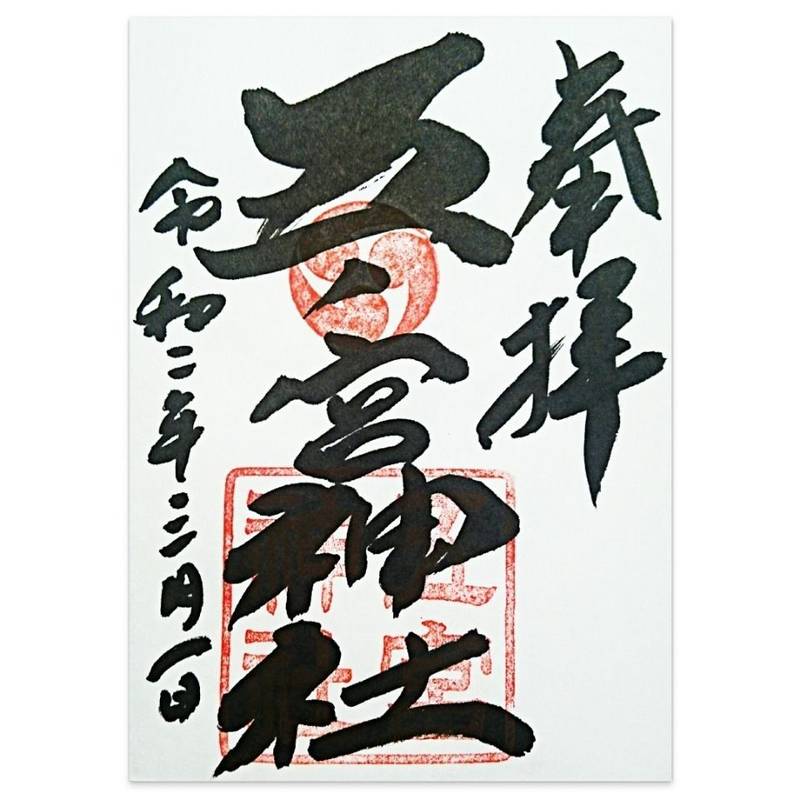 奉拝
五ノ宮神社
令和二年三月一日